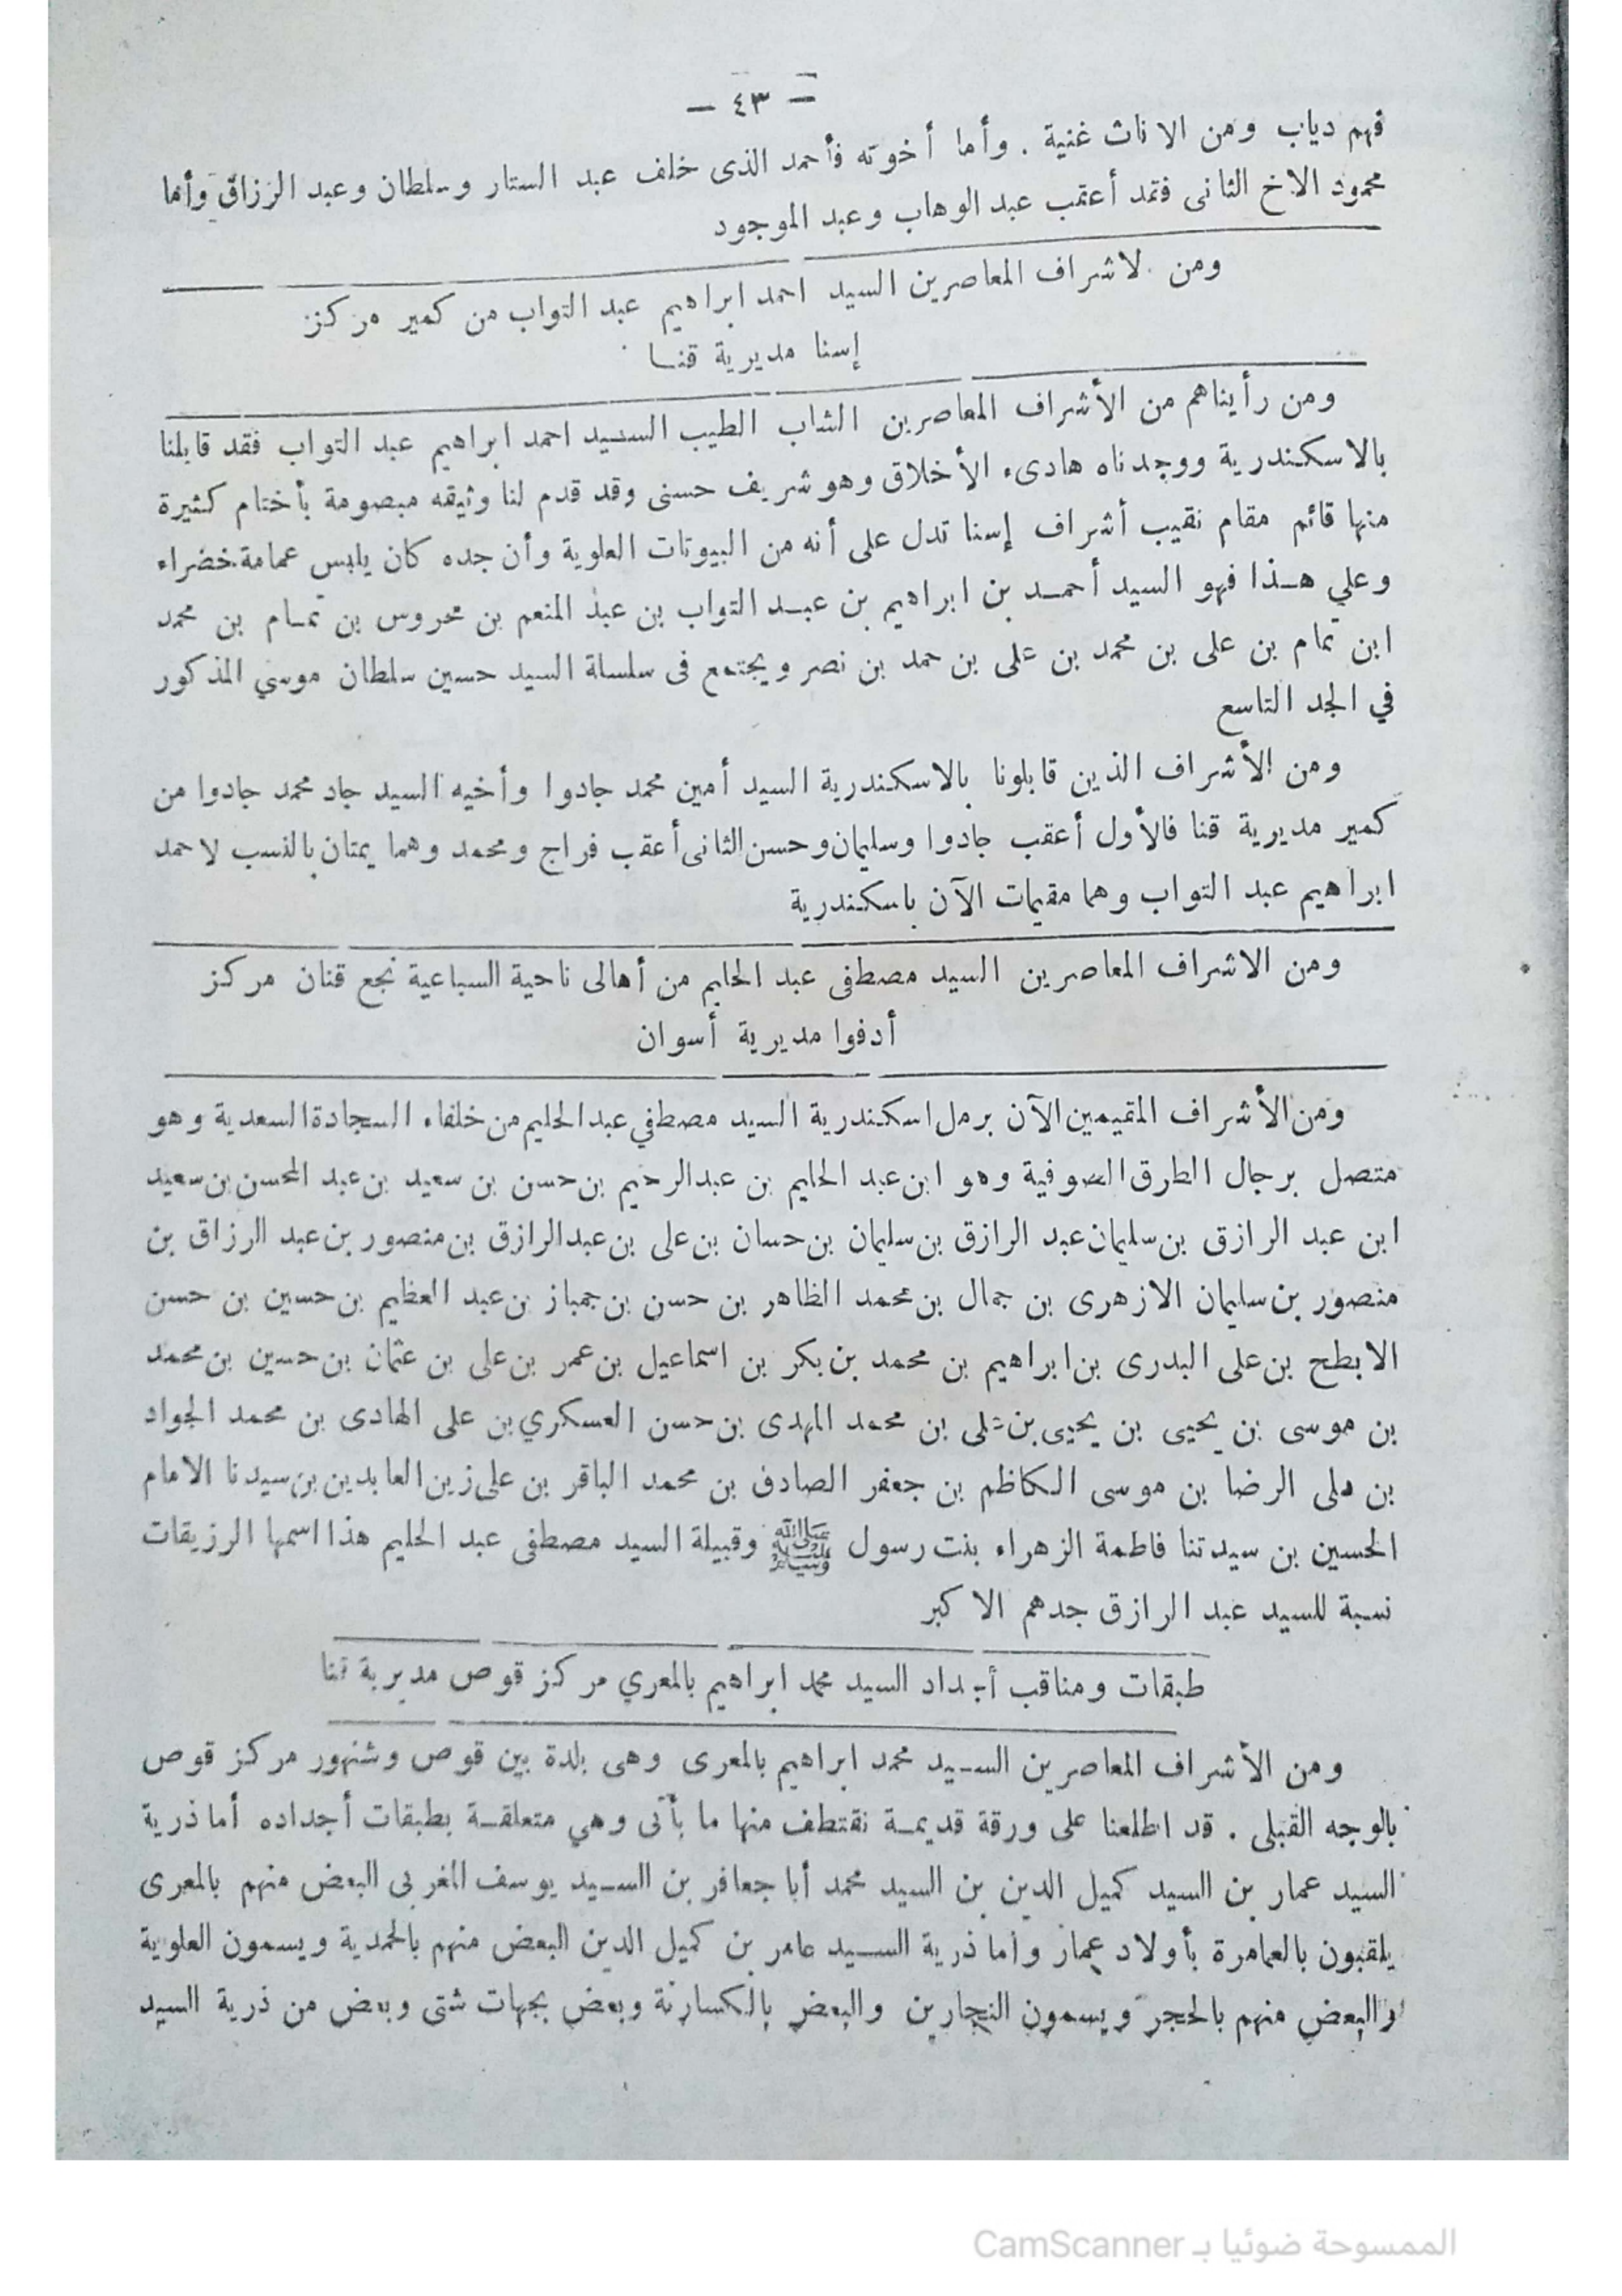 — ٤٣ —
فهم دياب ومن الاناث غنية . وأما أخوته فأحمد الذى خلف عبد الستار وسلطان وعبد الرزاق وأما
محمود الاخ الثانى فقد أعقب عبد الوهاب وعبد الموجود
ومن لاشراف المعاصرين السيد احمد ابراهيم عبد التواب من كمير مركز
إسنا مديرية قنا
ومن رأيناهم من الأشراف المعاصرين الشاب الطيب السيد احمد ابراهيم عبد التواب فقد قابلنا
بالاسكندرية ووجدناه هادىء الأخلاق وهو شريف حسنى وقد قدم لنا وثيقه مبصومة بأختام كثيرة
منها قائم مقام نقيب أشراف إسنا تدل على أنه من البيوتات العلوية وأن جده كان يلبس عمامة خضراء
وعلي هذا فهو السيد أحمد بن ابراهيم بن عبد التواب بن عبد المنعم بن محروس بن تمام بن محمد
ابن تمام بن على بن محمد بن على بن حمد بن نصر ويجتمع فى سلسلة السيد حسين سلطان موسي المذكور
في الجد التاسع
ومن الأشراف الذين قابلونا بالاسكندرية السيد أمين محمد جادوا وأخيه السيد جاد محمد جادوا من
كمير مديرية قنا فالأول أعقب جادوا وسليمان وحسن الثانى أعقب فراج ومحمد وهما يمتان بالنسب لاحمد
ابراهيم عبد التواب وهما مقيمات الآن باسكندرية
ومن الاشراف المعاصرين السيد مصطفى عبد الحليم من أهالى ناحية السباعية نجع قنان مركز
أدفوا مديرية أسوان
ومن الأشراف المقيمين الآن برمل اسكندرية السيد مصطفي عبد الحليم من خلفاء السجادة السعدية وهو
متصل برجال الطرق الصوفية وهو ابن عبد الحليم بن عبدالرحيم بن حسن بن سعيد بن عبد المحسن بن سعيد
ابن عبد الرازق بن سليمان عبد الرازق بن سليمان بن حسان بن على بن عبدالرازق بن منصور بن عبد الرزاق بن
منصور بن سليمان الازهرى بن جمال بن محمد الظاهر بن حسن بن جمباز بن عبد العظيم بن حسين بن حسن
الابطح بن على البدرى بن ابراهيم بن محمد بن بكر بن اسماعيل بن عمر بن على بن عثمان بن حسين بن محمد
بن موسى بن يحيى بن يحيى بن على بن محمد المهدى بن حسن العسكري بن على الهادى بن محمد الجواد
بن على الرضا بن موسى الكاظم بن جعفر الصادق بن محمد الباقر بن على زين العابدين بن سيدنا الامام
الحسين بن سيدتنا فاطمة الزهراء بنت رسول ﷺ وقبيلة السيد مصطفى عبد الحليم هذا اسمها الرزيقات
نسبة للسيد عبد الرازق جدهم الاكبر
طبقات ومناقب أجداد السيد محمد ابراهيم بالمعري مركز قوص مديرية قنا
ومن الأشراف المعاصرين السيد محمد ابراهيم بالمعرى وهى بلدة بين قوص وشنهور مركز قوص
بالوجه القبلى . قد اطلعنا على ورقة قديمة نقتطف منها ما يأتى وهي متعلقة بطبقات أجداده أما ذرية
السيد عمار بن السيد كميل الدين بن السيد محمد أبا جعافر بن السيد يوسف المغربى البعض منهم بالمعرى
يلقبون بالعمامرة بأولاد عمار وأما ذرية السيد عامر بن كميل الدين البعض منهم بالحمدية ويسمون العلوية
والبعض منهم بالحجر ويسمون النجارين والبعض بالكسارنة وبعض بجهات شتى وبعض من ذرية السيد
الممسوحة ضوئيا بـ CamScanner